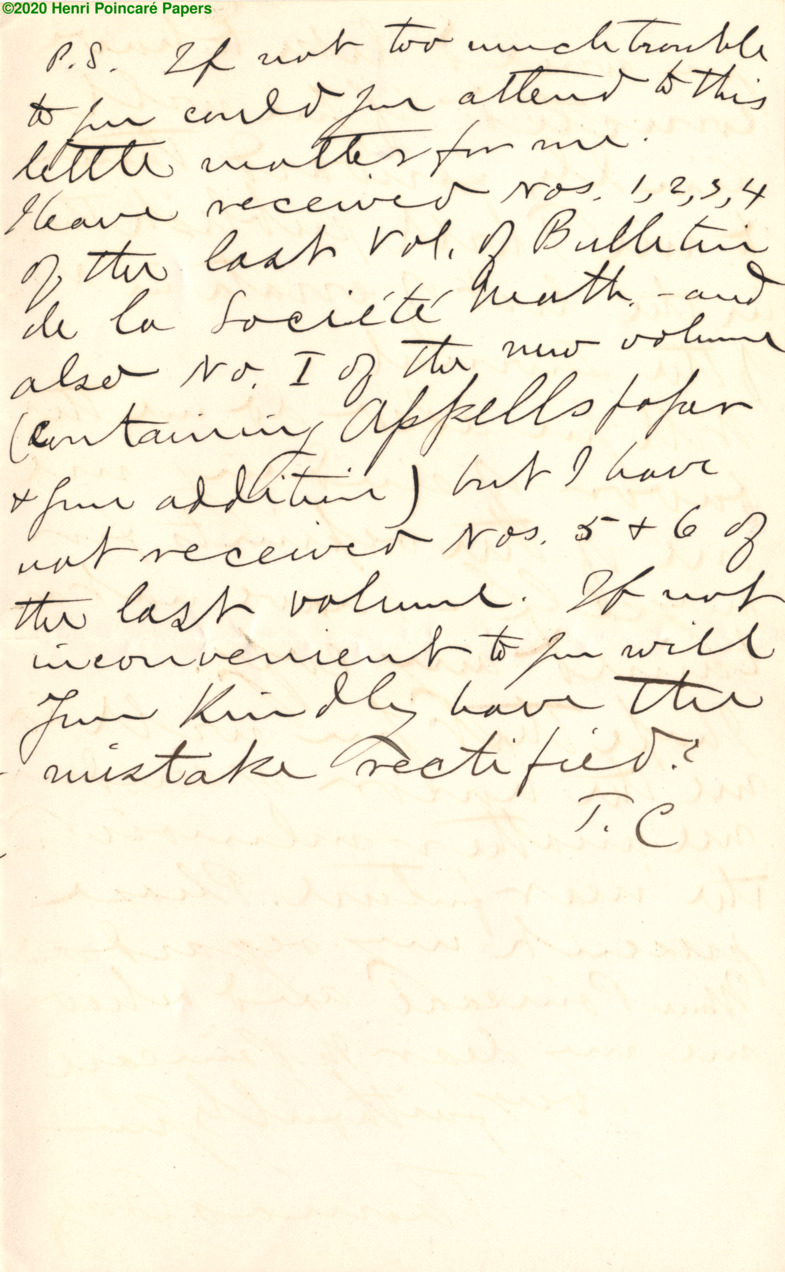 ©2020 Henri Poincaré Papers
P.S. If not too much trouble
to you could you attend to this
little matter for me.
I have received Nos. 1, 2, 3, 4
of the last Vol. of Bulletin
de la Société Math. - and
also No. I of the new volume
(containing Appells paper
+ your addition) but I have
not received Nos. 5 + 6 of
the last volume. If not
inconvenient to you will
you kindly have the
mistake rectified?
T. C